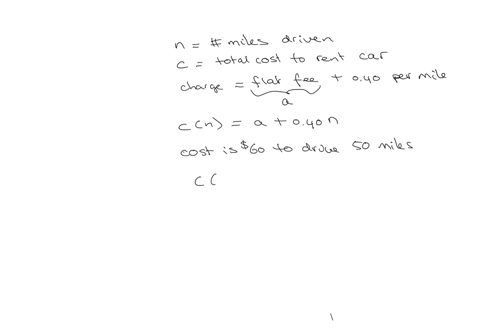 n = # miles driven
c = total cost to rent car
charge = flat fee + 0.40 per mile
a
c(n) = a + 0.40n
cost is $60 to drive 50 miles
c(